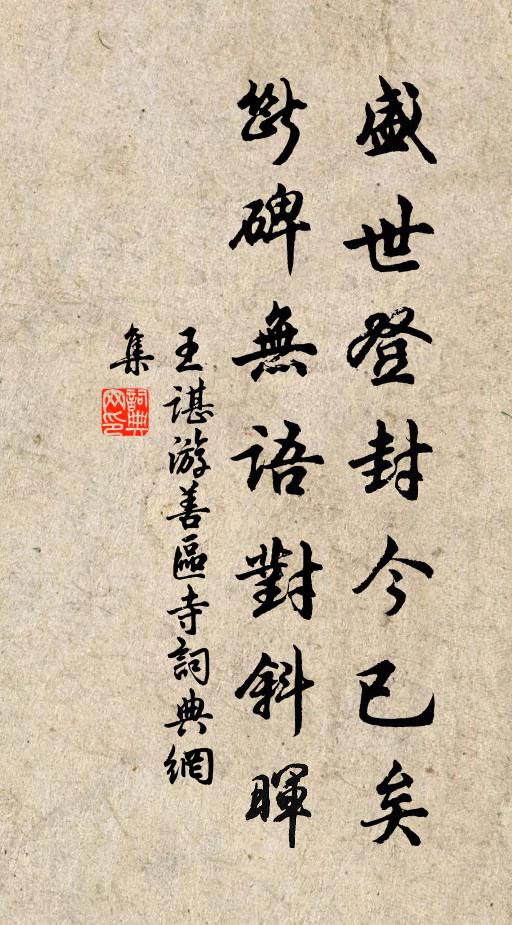 盛世登封今已矣
斷碑無語對斜暉
王諶游善區寺詞典網
集
詞典
網印